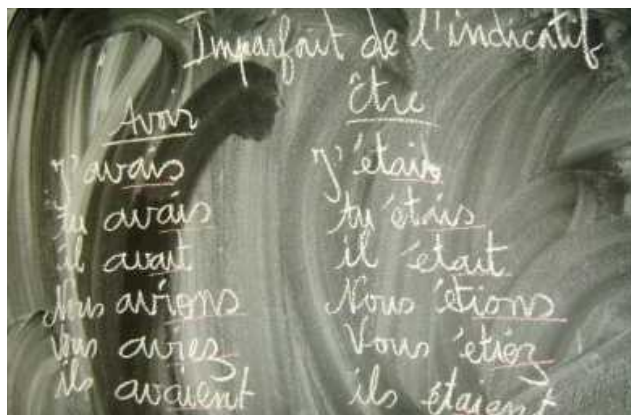 Imparfait de l'indicatif
Avoir
j'avais
tu avais
il avait
Nous avions
Vous aviez
ils avaient
être
j'étais
tu étais
il était
Nous étions
Vous étiez
ils étaient